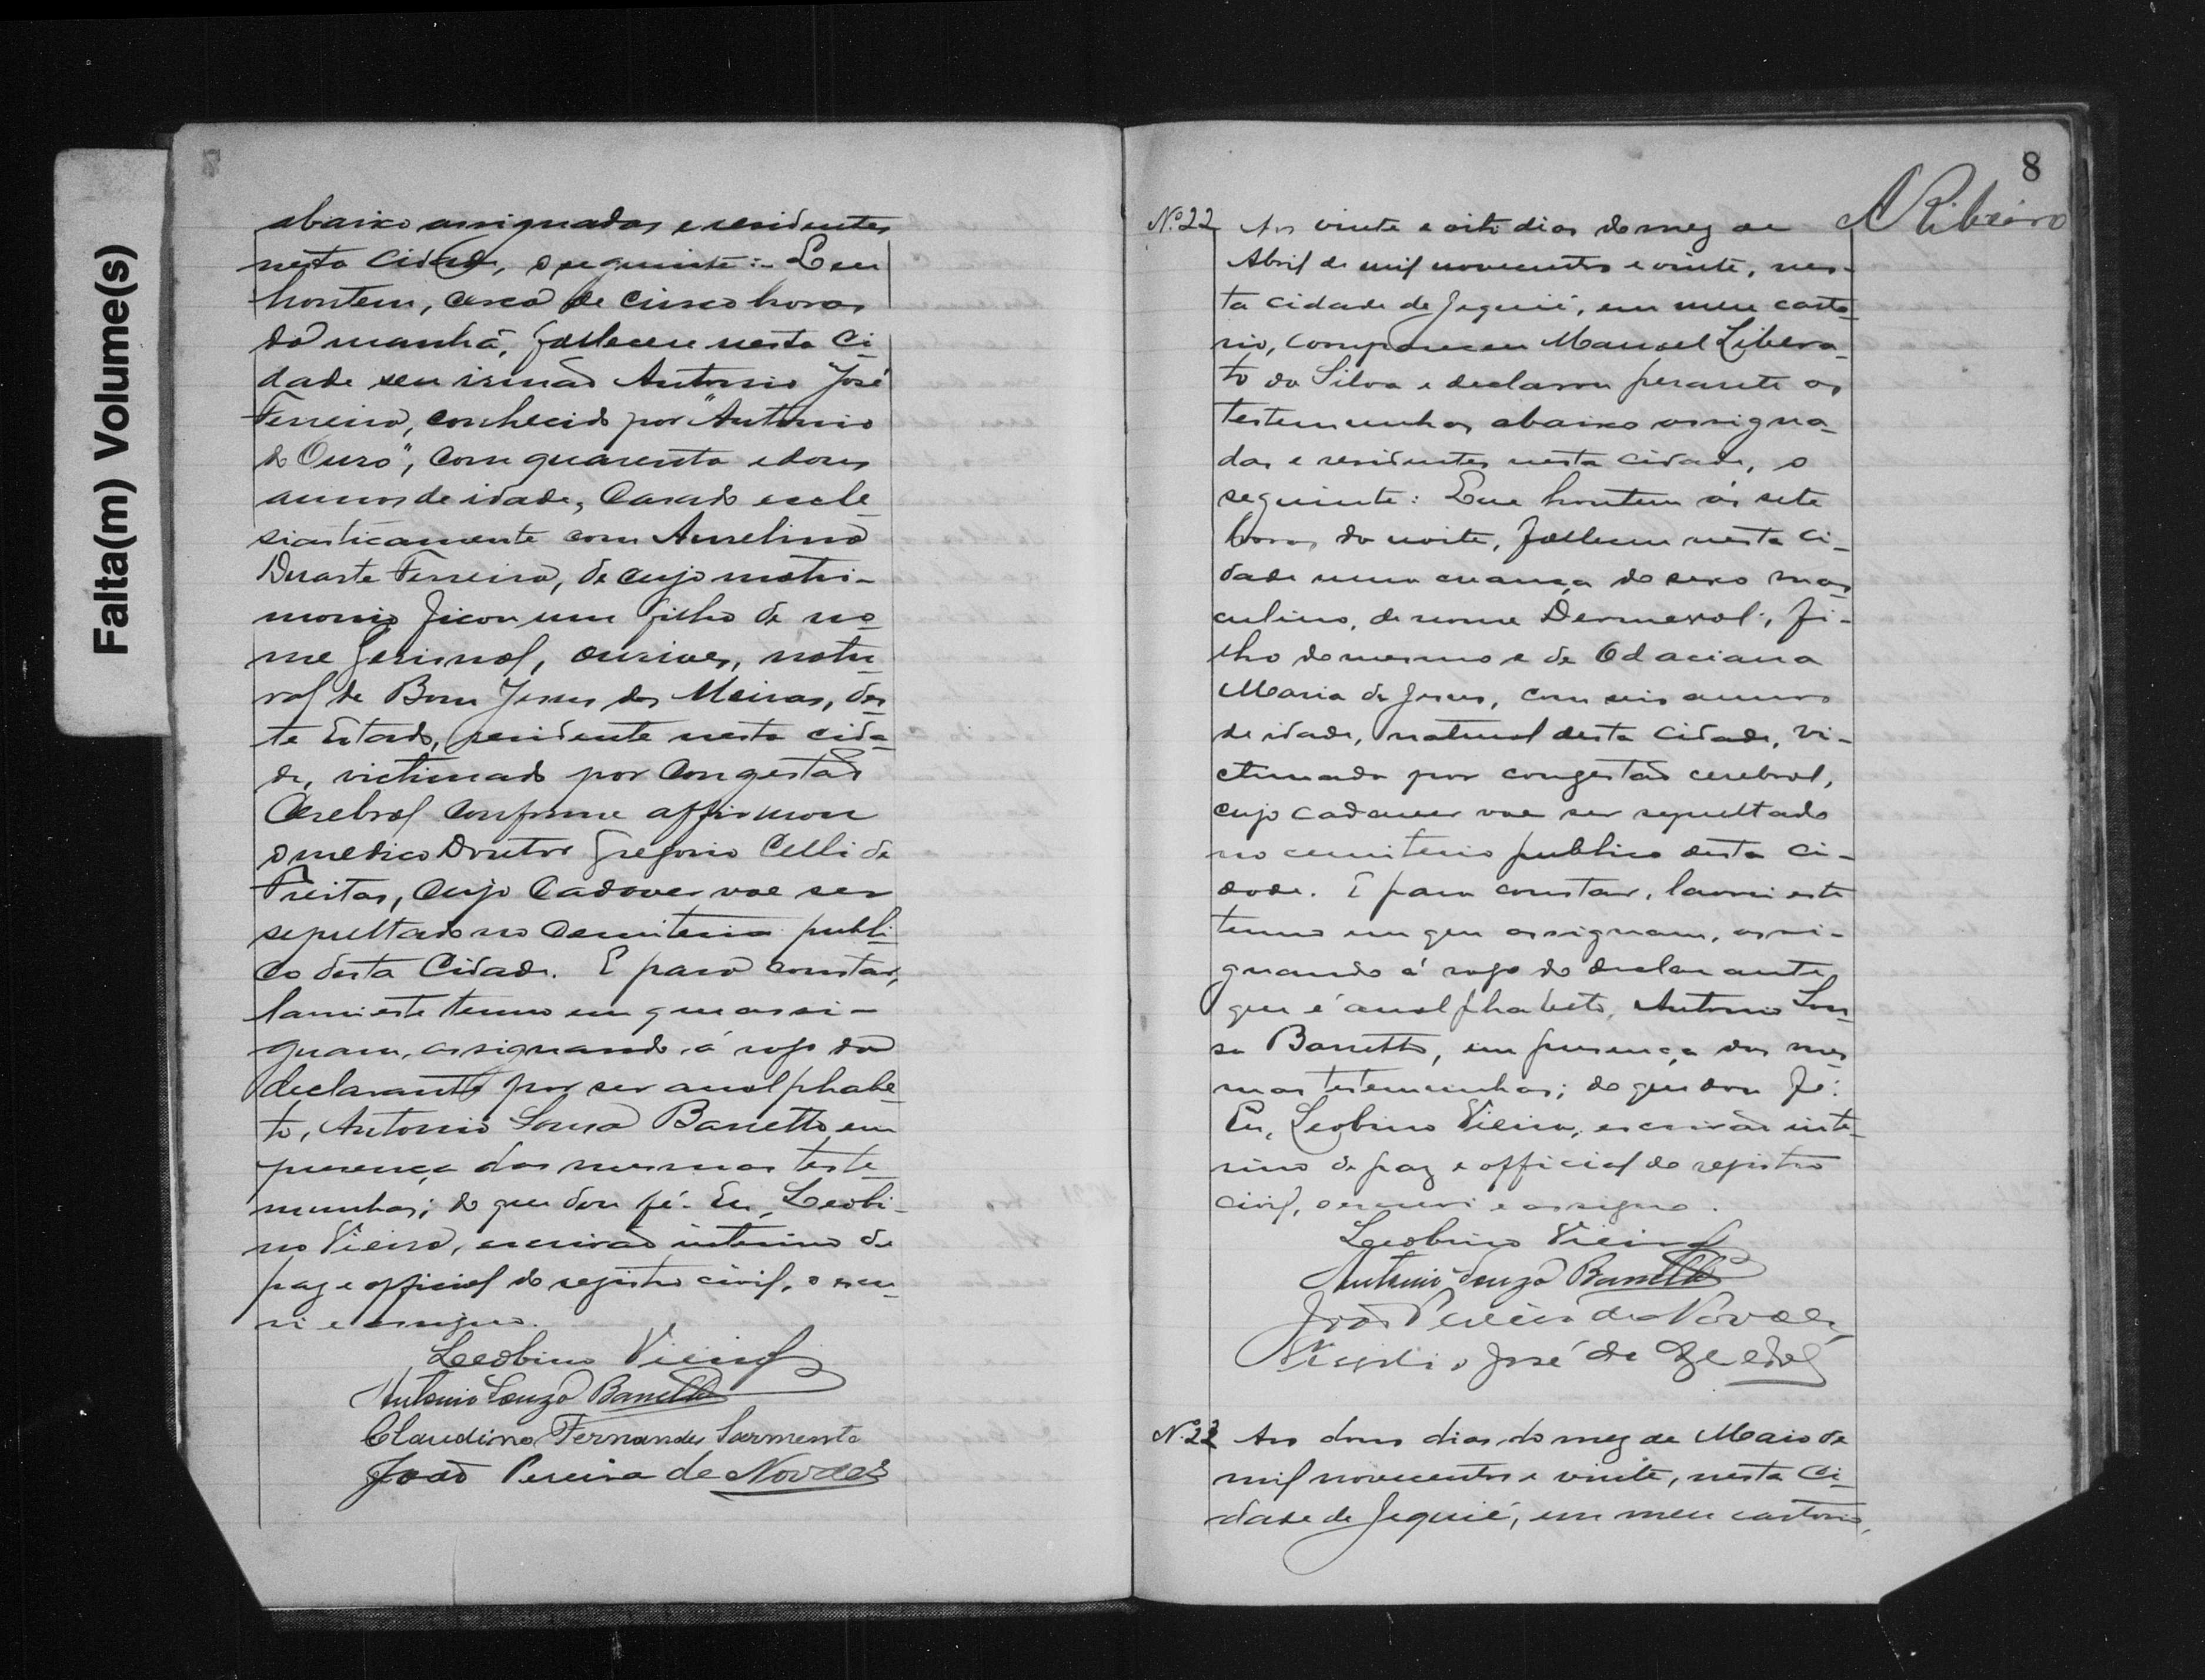 Falta(m) Volume(s)
7
abaixo assignadas e residentes
nesta cidade, o seguinte:- Que
hontem, cerca de cinco horas
da manhã, falleceu nesta ci-
dade seu irmão Antonio José
Ferreira, conhecido por "Antonio
do Ouro", com quarenta e dous
annos de idade, casado eccle-
siasticamente com Aurelina
Duarte Ferreira, de cujo matri-
monio ficou um filho de no-
me Jesional, ourives, natu-
ral de Bom Jesus dos Meiras, des-
te Estado, residente nesta cida-
de, victimado por congestão
cerebral conforme affirmou
o medico Doutor Gregorio Celli de
Freitas, cujo cadaver vae ser
sepultado no cemiterio publi-
co desta cidade. E para constar,
lavrei este termo em que assi-
gnam, assignando á rogo do
declarante por ser analphabe-
to, Antonio Souza Barretto em
presença das mesmas teste-
munhas; do que dou fé. Eu, Leobi-
no Vieira, escrivão interino de
paz e official do registro civil, o escre-
vi e assigno.
Leobino Vieira
Antonio Souza Barretto
Claudino Fernandes Sarmento
João Pereira de Novaes
8
A Ribeiro
Nº 22 Aos vinte e oito dias do mez de
Abril de mil novecentos e vinte, nes-
ta cidade de Jequié, em meu carto-
rio, compareceu Manoel Libera-
to da Silva e declarou perante as
testemunhas abaixo assigna-
das e residentes nesta cidade, o
seguinte: Que hontem ás sete
horas da noite, falleceu nesta ci-
dade uma criança do sexo mas-
culino, de nome Dermeval, fi-
lho do mesmo e de Odaciana
Maria de Jesus, com seis annos
de idade, natural desta cidade, vi-
ctimada por congestão cerebral,
cujo cadaver vae ser sepultado
no cemiterio publico desta ci-
dade. E para constar, lavrei este
termo em que assignam, assi-
gnando á rogo do declarante
que é analphabeto, Antonio Sou-
sa Barretto, em presença das mes-
mas testemunhas; do que dou fé.
Eu, Leobino Vieira, escrivão inte-
rino de paz e official do registro
civil, o escrevi e assigno.
Leobino Vieira
Antonio Souza Barretto
João Pereira de Novaes
José de
Nº 22 Aos dous dias do mez de Maio de
mil novecentos e vinte, nesta ci-
dade de Jequié, em meu cartorio,